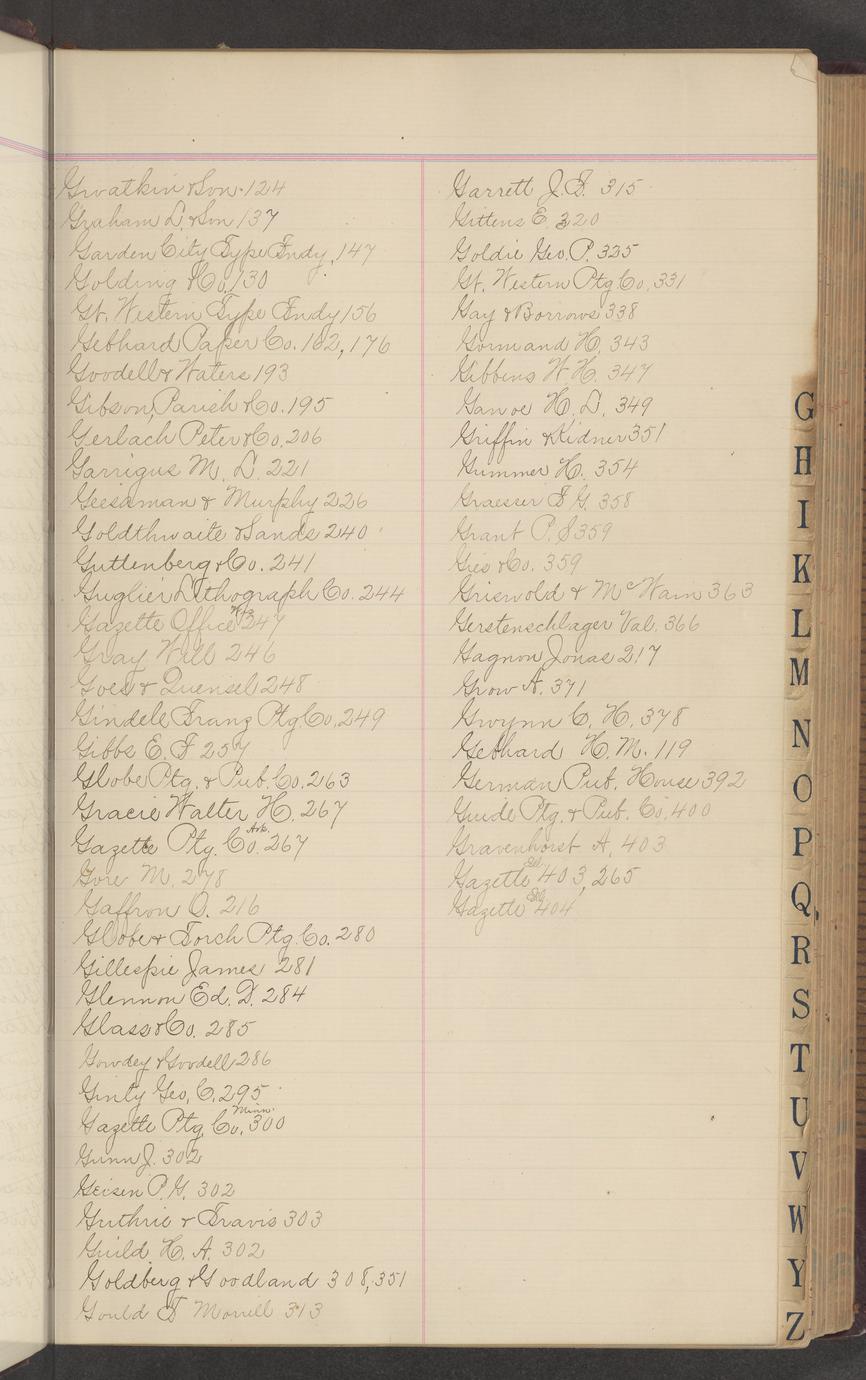 Gwatkin & Son. 124
Graham L. & Son 137
Garden City Type Fndy, 147
Golding & Co, 130
Gt. Western Type Fndy 156
Gebhard Paper Co. 162, 176
Goodell & Waters 193
Gibson, Parish & Co. 195
Gerlach Peter & Co, 206
Garrigus M. L. 221
Geesaman & Murphy 226
Goldthwaite & Sands 240
Guttenberg & Co. 241
Guglier Lithograph Co. 244
Gazette Office 247
Gray Will 246
Goes & Quensel 248
Gindele Franz Ptg. Co, 249
Gibbs E. F 257
Globe Ptg. & Pub. Co. 263
Gracie Walter H. 267
Gazette Ptg. Co. Ark. 267
Gore M. 278
Gaffron O. 216
Globe & Torch Ptg. Co. 280
Gillespie James 281
Glennon Ed. D. 284
Glass & Co. 285
Gowdey & Goodell 286
Ginty Geo, C, 295
Gazette Ptg. Co, Minn. 300
Gunn J. 302
Geisen P. G. 302
Guthrie & Travis 303
Guild H. A. 302
Goldberg & Goodland 308, 351
Gould & Morrell 313
Garrett J. F. 315
Gittens E. 320
Goldie Geo. P. 325
Gt. Western Ptg Co, 331
Gay & Borrows 338
Gormand H, 343
Gibbens W H. 347
Ganoe H. L. 349
Griffin & Kidner 351
Gummer H. 354
Graesser F G. 358
Grant P. S 359
Gies & Co. 359
Griswold & McWain 363
Gerstenschlager Val. 366
Gagnon Jonas 217
Grow A. 371
Gwynn C. H. 378
Gebhard H. M. 119
German Pub. House 392
Guide Ptg. & Pub. Co, 400
Gravenhorst A, 403
Gazette 403, 265
Gazette 404
G
H
I
K
L
M
N
O
P
Q
R
S
T
U
V
W
Y
Z